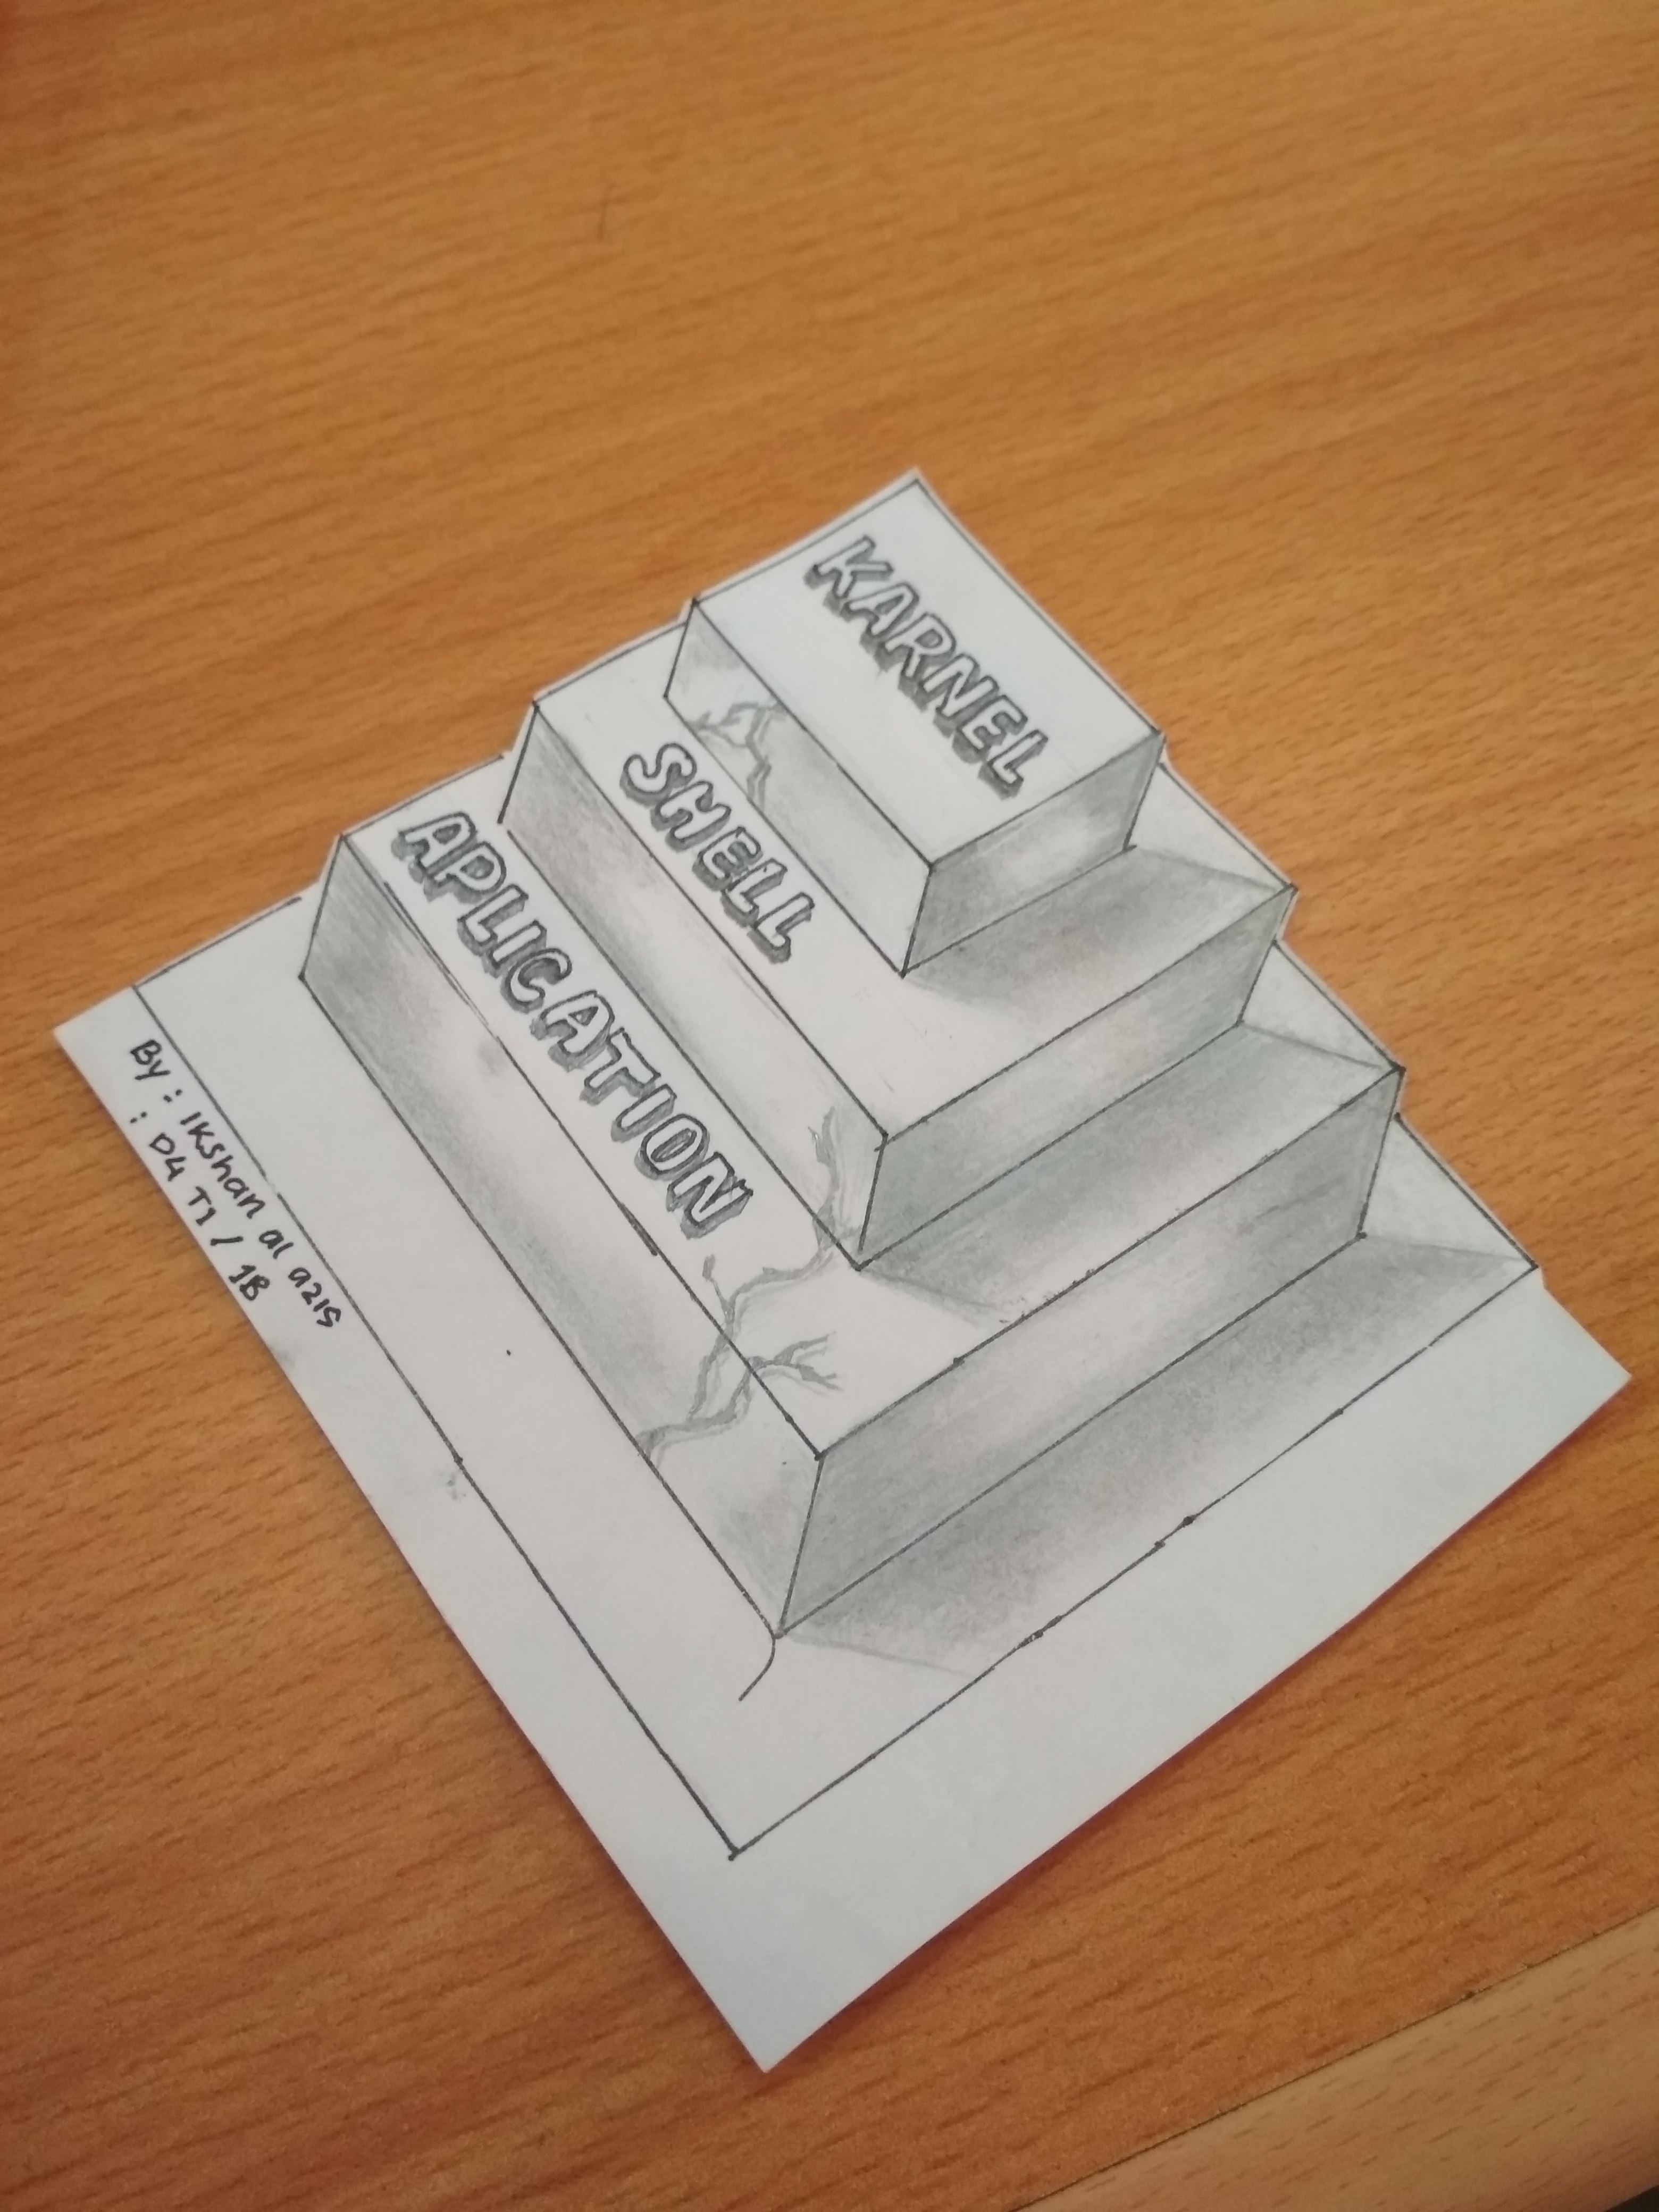 KARNEL
SHELL
APLICATION
By : Ikshan al azis
: D4 TI / 1B